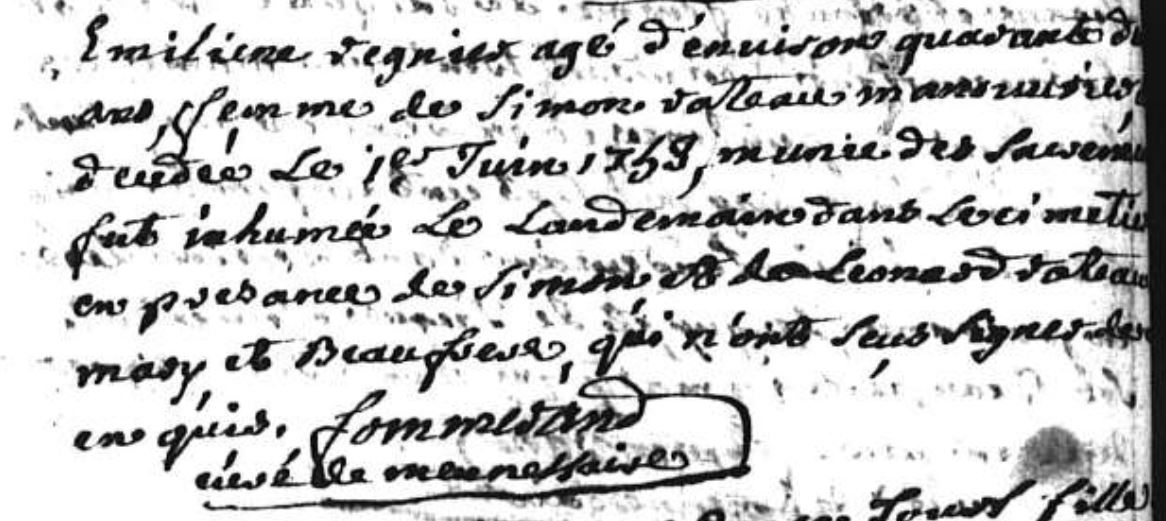 Emiliene regnier agé d'enuison quarante d
ans, femme de Simon rateau manouvrier
decedée Le 1er Juin 1758, munie des Sacrem
fut inhumée Le Landemain dans Le cimetie
en presance de Simon et de Leonard rateau
mary et Beaufrere, qui n'ont Seus Signer de
en quis. Sommestand
curé de menessaire
Jours fille